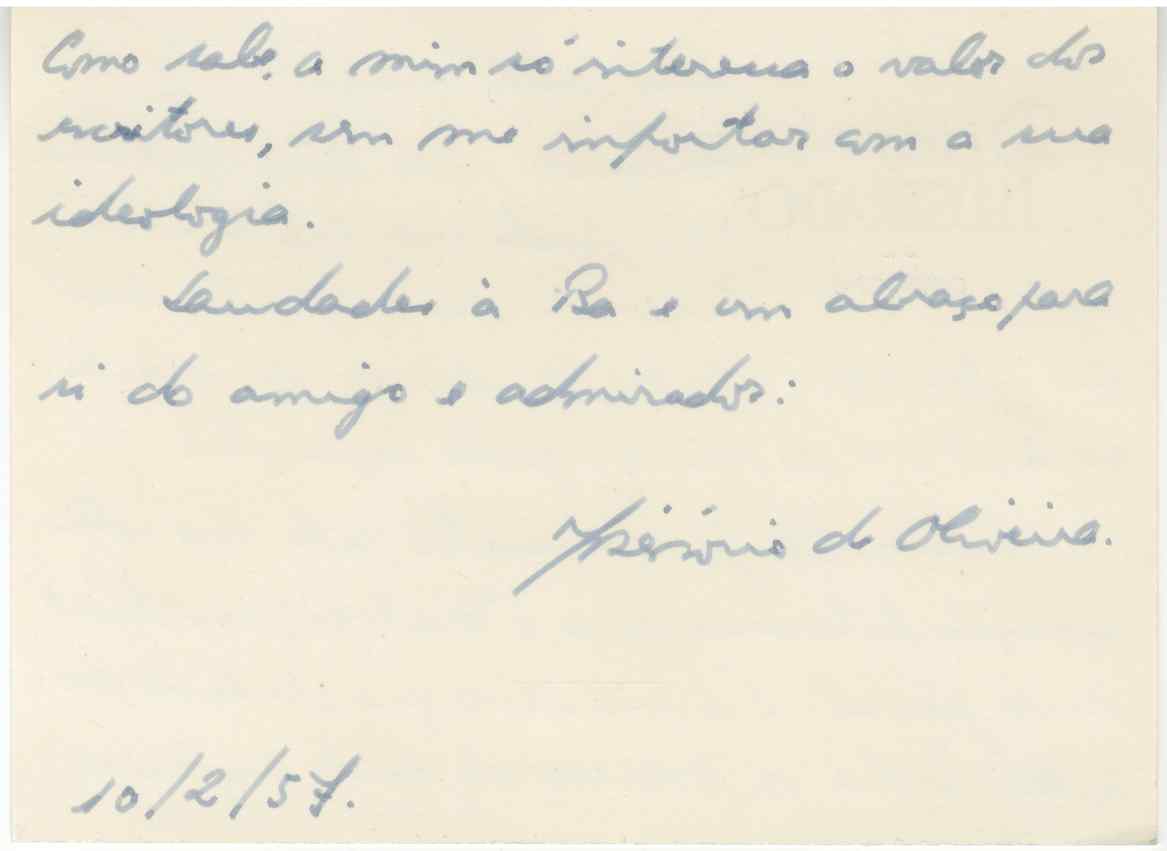 Como sabe, a mim só interessa o valor dos
escritores, sem me importar com a sua
ideologia.
Saudades à Ba e um abraço para
si do amigo e admirador:
de Oliveira.
10/2/57.